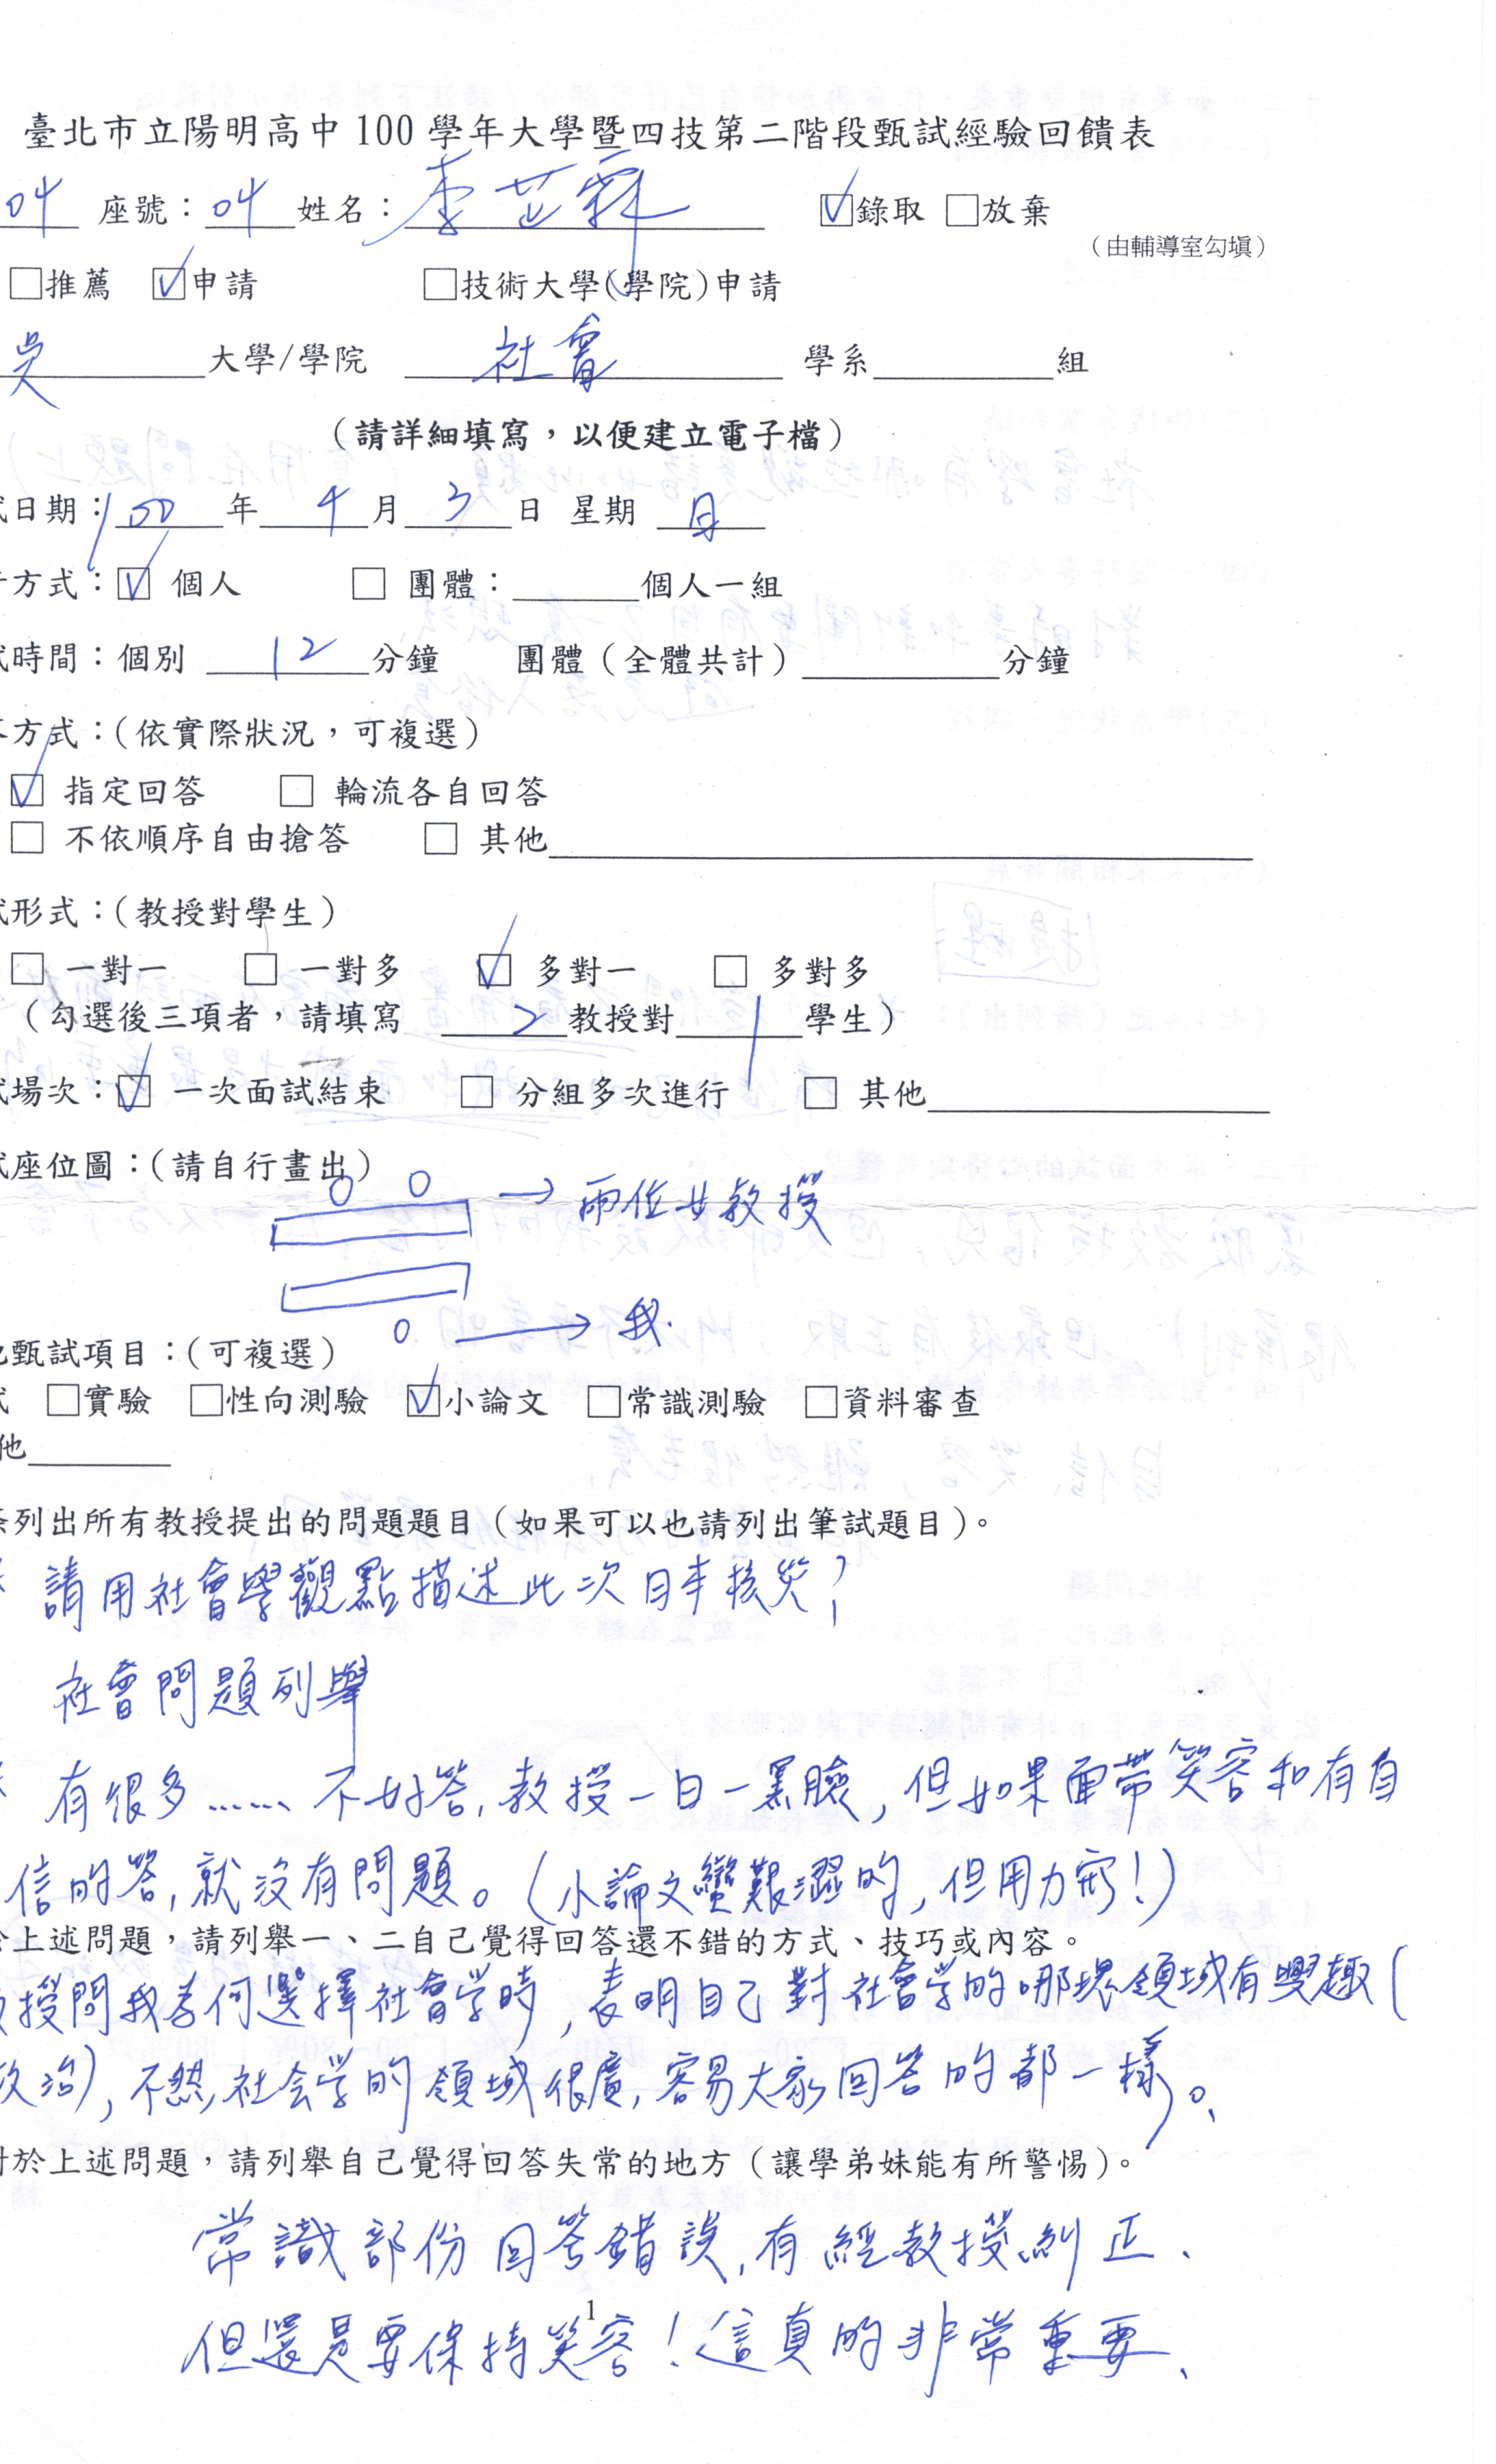 臺北市立陽明高中 100 學年大學暨四技第二階段甄試經驗回饋表
04 座號：04 姓名：李芷霖 ☑錄取 □放棄
（由輔導室勾填）
□推薦 ☑申請 □技術大學(學院)申請
吳 大學/學院 社會 學系 組
（請詳細填寫，以便建立電子檔）
試日期：100 年 4 月 3 日 星期 日
方式：☑ 個人 □ 團體： 個人一組
試時間：個別 12 分鐘 團體（全體共計） 分鐘
答方式：（依實際狀況，可複選）
☑ 指定回答 □ 輪流各自回答
□ 不依順序自由搶答 □ 其他
試形式：（教授對學生）
□ 一對一 □ 一對多 ☑ 多對一 □ 多對多
（勾選後三項者，請填寫 2 教授對 1 學生）
試場次：☑ 一次面試結束 □ 分組多次進行 □ 其他
試座位圖：（請自行畫出）
→ 兩位女教授
→ 我.
他甄試項目：（可複選）
試 □實驗 □性向測驗 ☑小論文 □常識測驗 □資料審查
他
列出所有教授提出的問題題目（如果可以也請列出筆試題目）。
請用社會學觀點描述此次日本核災？
社會問題列舉
有很多……不好答，教授一白一黑臉，但如果面帶笑容和有自
信的答，就沒有問題。（小論文蠻艱澀的，但用力寫！）
於上述問題，請列舉一、二自己覺得回答還不錯的方式、技巧或內容。
教授問我為何選擇社會学時，表明自己對社會学的哪塊領域有興趣（
政治），不然社会学的領域很廣，容易大家回答的都一樣。
對於上述問題，請列舉自己覺得回答失常的地方（讓學弟妹能有所警惕）。
常識部份回答錯誤，有經教授糾正、
但還是要保持笑容！這真的非常重要、
1